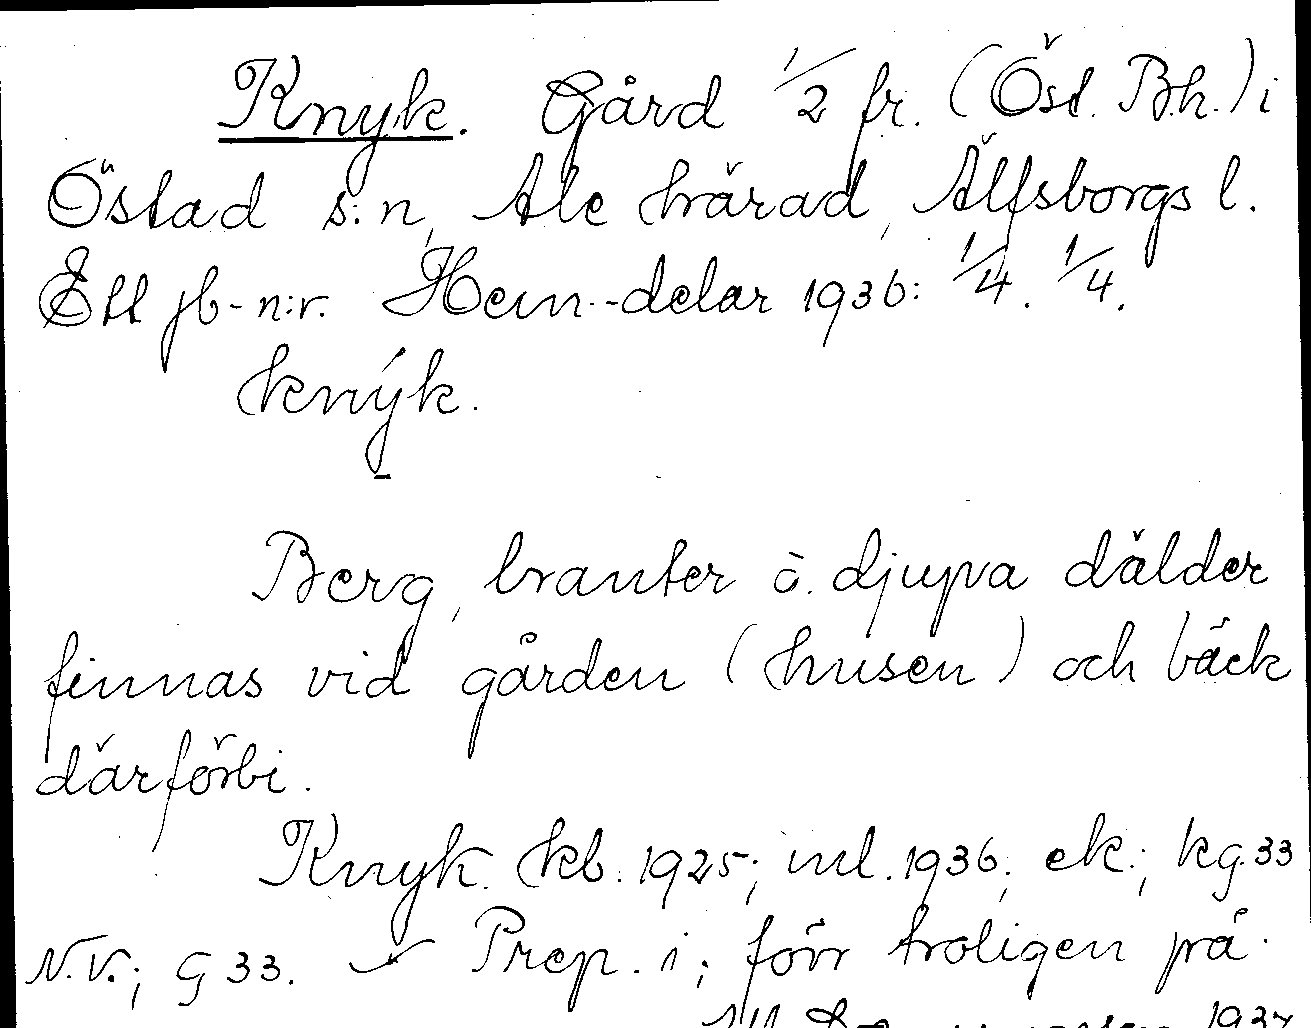 Knyk. Gård 1/2 fr. (Öst. Bh.) i
Östad s:n, Ale härad, Älfsborgs l.
Ett jb-n:r. Hem.-delar 1936: 1/4. 1/4.
knýk.
Berg, branter o. djupa dälder
finnas vid gården (husen) och bäck
därförbi.
Knyk kb. 1925; ml. 1936; ek.; kg. 33
N.V.; G 33. Prep. i; förr troligen på.
1937